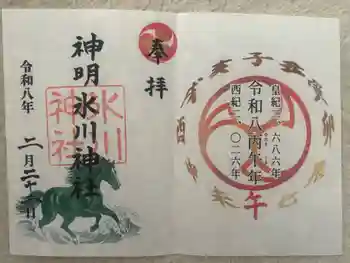 奉拝
神明氷川神社
氷川神社
令和八年
二月二十二日
皇紀二、六八六年
令和八丙午年
西紀二、〇二六年
子
丑
寅
卯
辰
巳
午
未
申
酉
戌
亥